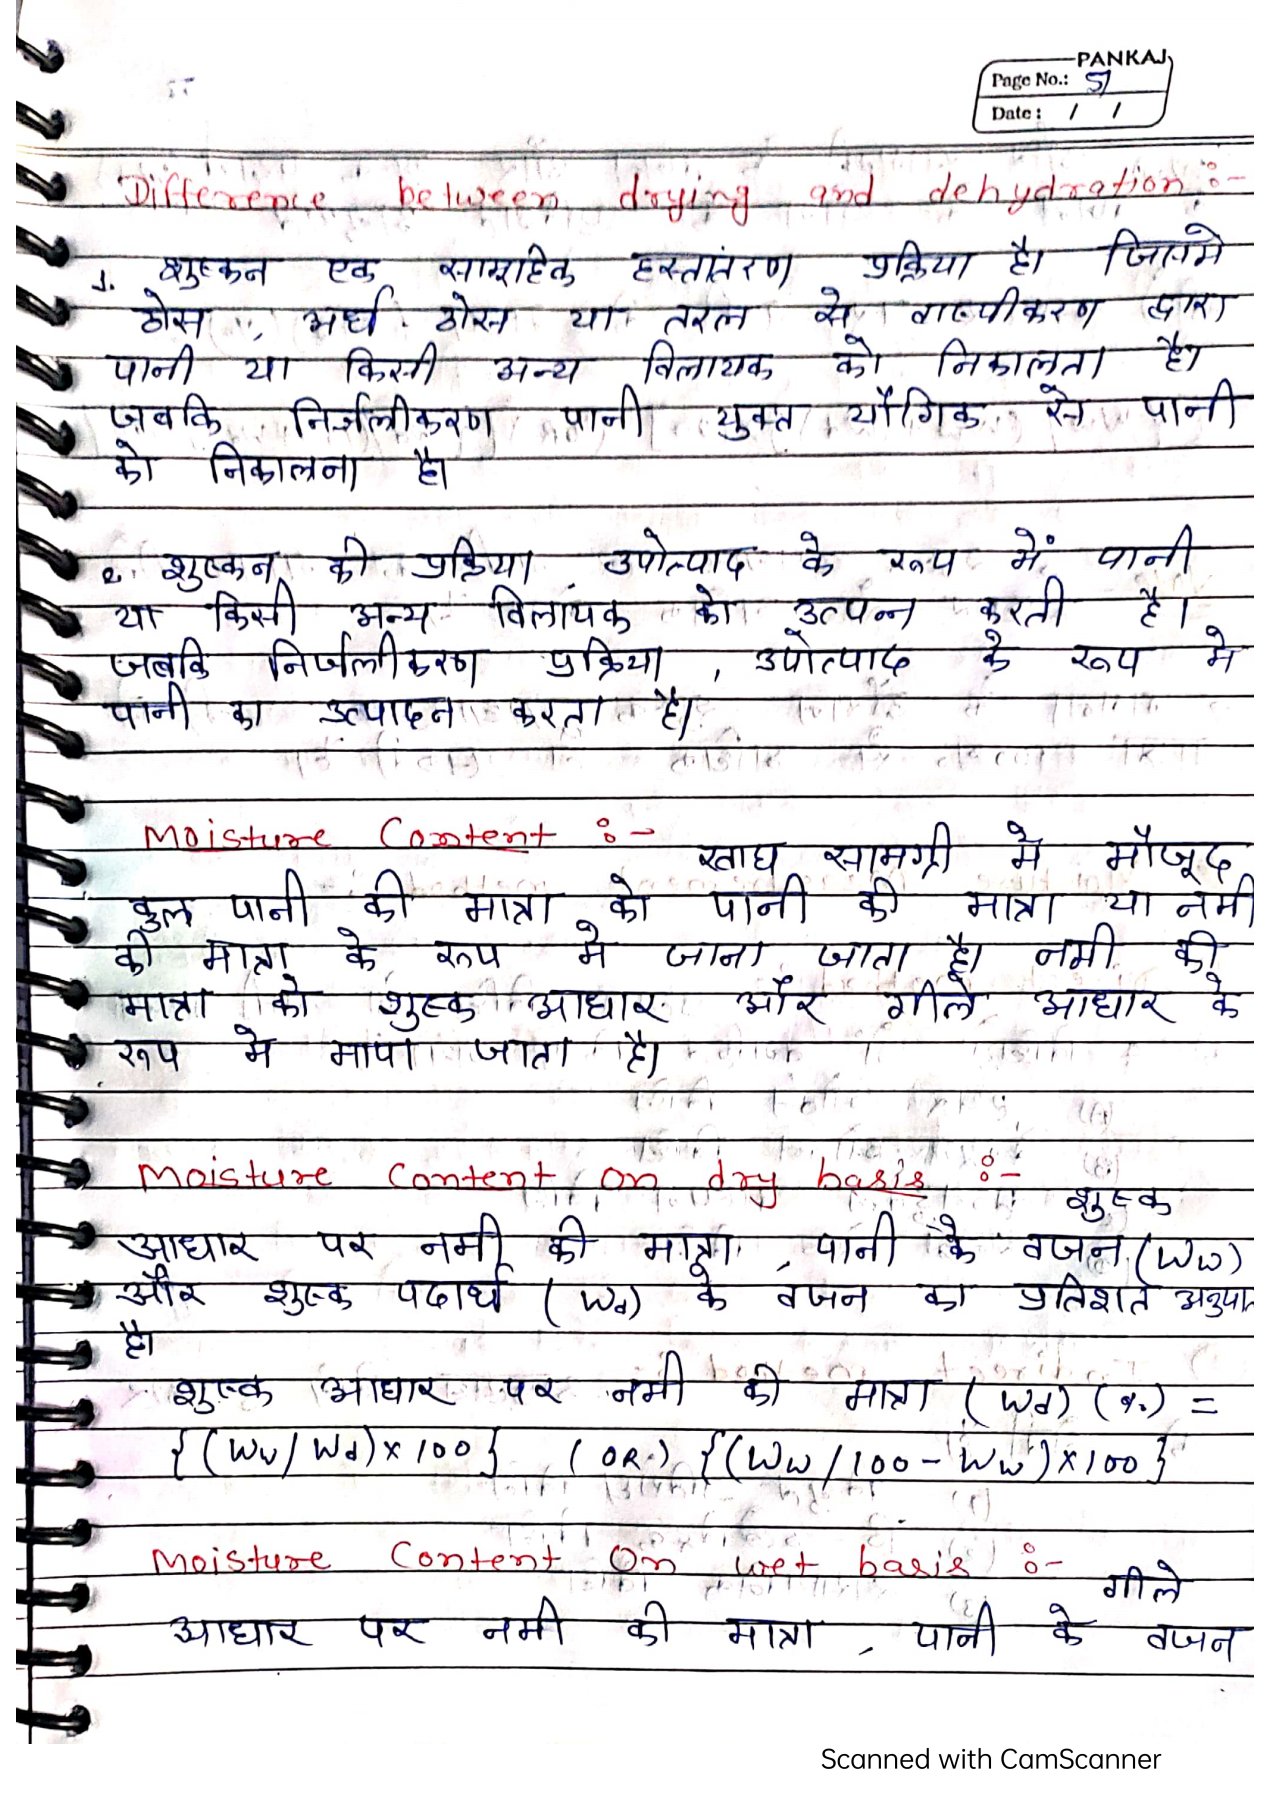 PANKAJ
Page No.: 51
Date: / /
Difference between drying and dehydration :-
1. शुष्कन एक सामूहिक हस्तांतरण प्रक्रिया है। जिसमे
ठोस, अर्ध ठोस या तरल से वाष्पीकरण द्वारा
पानी या किसी अन्य विलायक को निकालता है।
जबकि निर्जलीकरण पानी युक्त यौगिक से पानी
को निकालना है।
2. शुष्कन की प्रक्रिया उपोत्पाद के रूप में पानी
या किसी अन्य विलायक को उत्पन्न करती है।
जबकि निर्जलीकरण प्रक्रिया, उपोत्पाद के रूप मे
पानी का उत्पादन करता है।
Moisture Content :-
खाद्य सामग्री मे मौजूद
कुल पानी की मात्रा को पानी की मात्रा या नमी
की मात्रा के रूप मे जाना जाता है। नमी की
मात्रा को शुष्क आधार और गीले आधार के
रूप मे मापा जाता है।
Moisture Content on dry basis :-
शुष्क
आधार पर नमी की मात्रा, पानी के वजन (Ww)
और शुष्क पदार्थ (Wd) के वजन का प्रतिशत अनुपात
है।
शुष्क आधार पर नमी की मात्रा (Wd) (%) =
{(Ww/Wd)×100} (OR) {(Ww/100-Ww)×100}
Moisture Content On wet basis :-
गीले
आधार पर नमी की मात्रा, पानी के वजन
Scanned with CamScanner